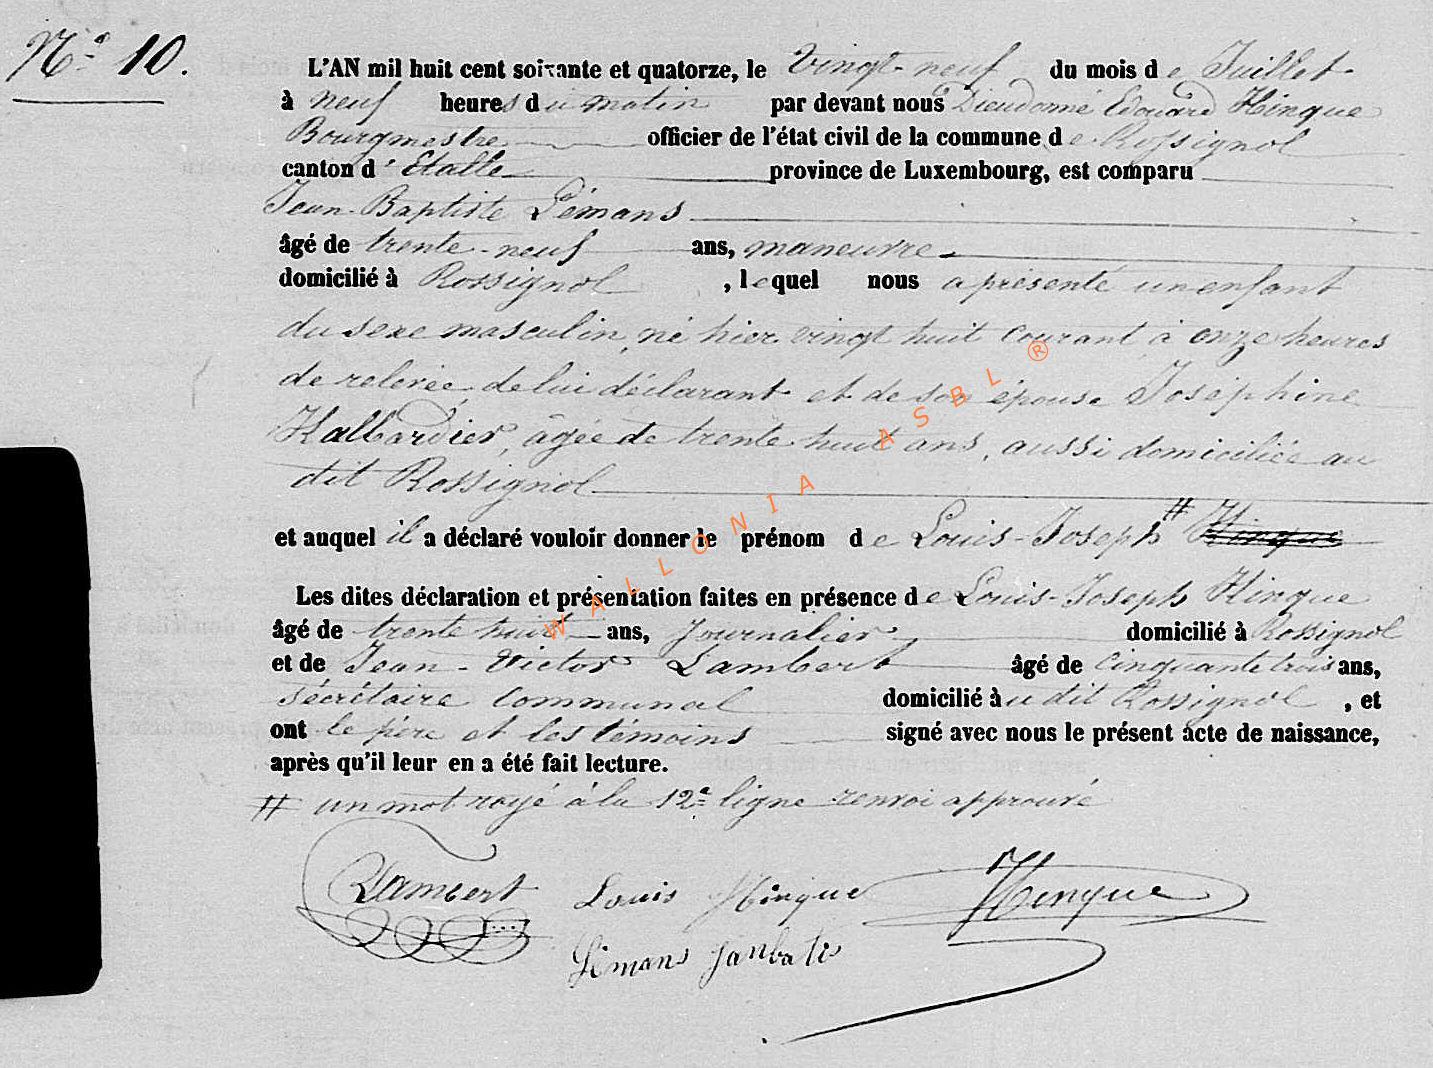 N° 10.
L'AN mil huit cent soixante et quatorze, le vingt-neuf du mois de Juillet
à neuf heures du matin par devant nous Dieudonné Edouard Hinque
Bourgmestre officier de l'état civil de la commune de Rossignol
canton d'Etalle province de Luxembourg, est comparu
Jean-Baptiste Lémans
âgé de trente-neuf ans, maneuvre
domicilié à Rossignol, lequel nous a présenté un enfant
du sexe masculin, né hier vingt huit courant à onze heures
de relevée, de lui déclarant et de son épouse Joséphine
Hallbardier, âgée de trente huit ans, aussi domiciliée au
dit Rossignol
et auquel il a déclaré vouloir donner le prénom de Louis-Joseph # Hinque
Les dites déclaration et présentation faites en présence de Louis-Joseph Hinque
âgé de trente huit ans, Journalier domicilié à Rossignol
et de Jean-Victor Lambert âgé de cinquante trois ans,
sécrétaire communal domicilié àu dit Rossignol, et
ont le père et les témoins signé avec nous le présent acte de naissance,
après qu'il leur en a été fait lecture.
# un mot rayé à la 12e ligne renvoi approuvé
Lambert Louis Hinque Hinque
Lémans Janbatis
WALLONIA ASBL ®